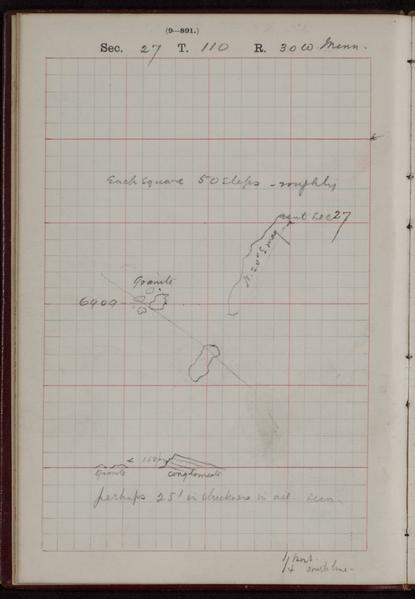 (9—891.)
Sec. 27 T. 110 R. 30 W Minn.
Each square 50 steps - roughly
cent Sec 27
N. 20° E mag
Granite
6909
Granite
conglomerate
perhaps 25' in thickness in all. seen
1/4 post
south line -